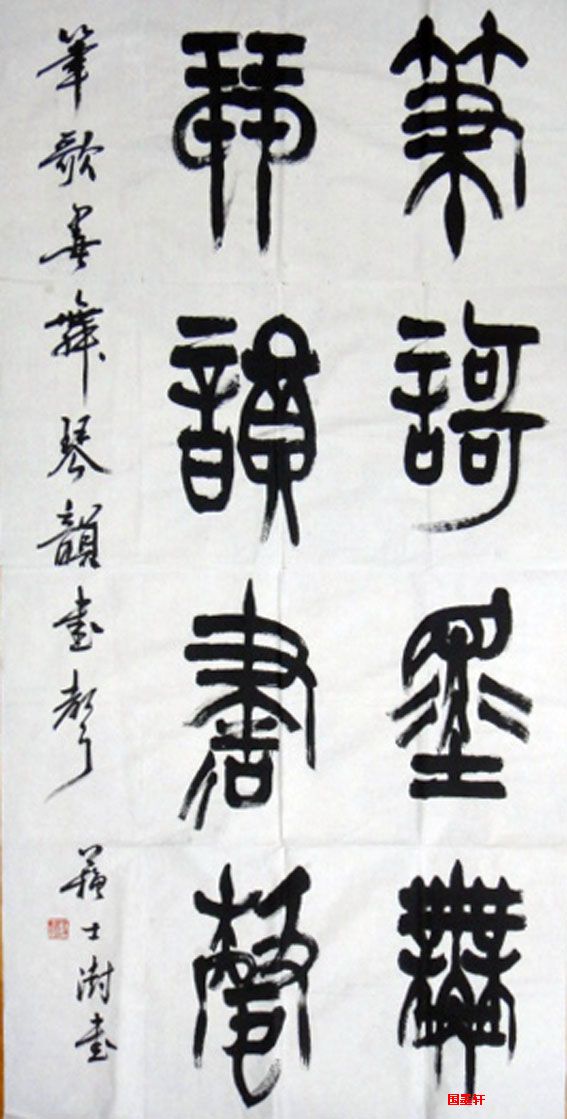 筆謌墨舞
琴韻書聲
筆歌墨舞琴韻書聲
蘇士澍書
国墨轩